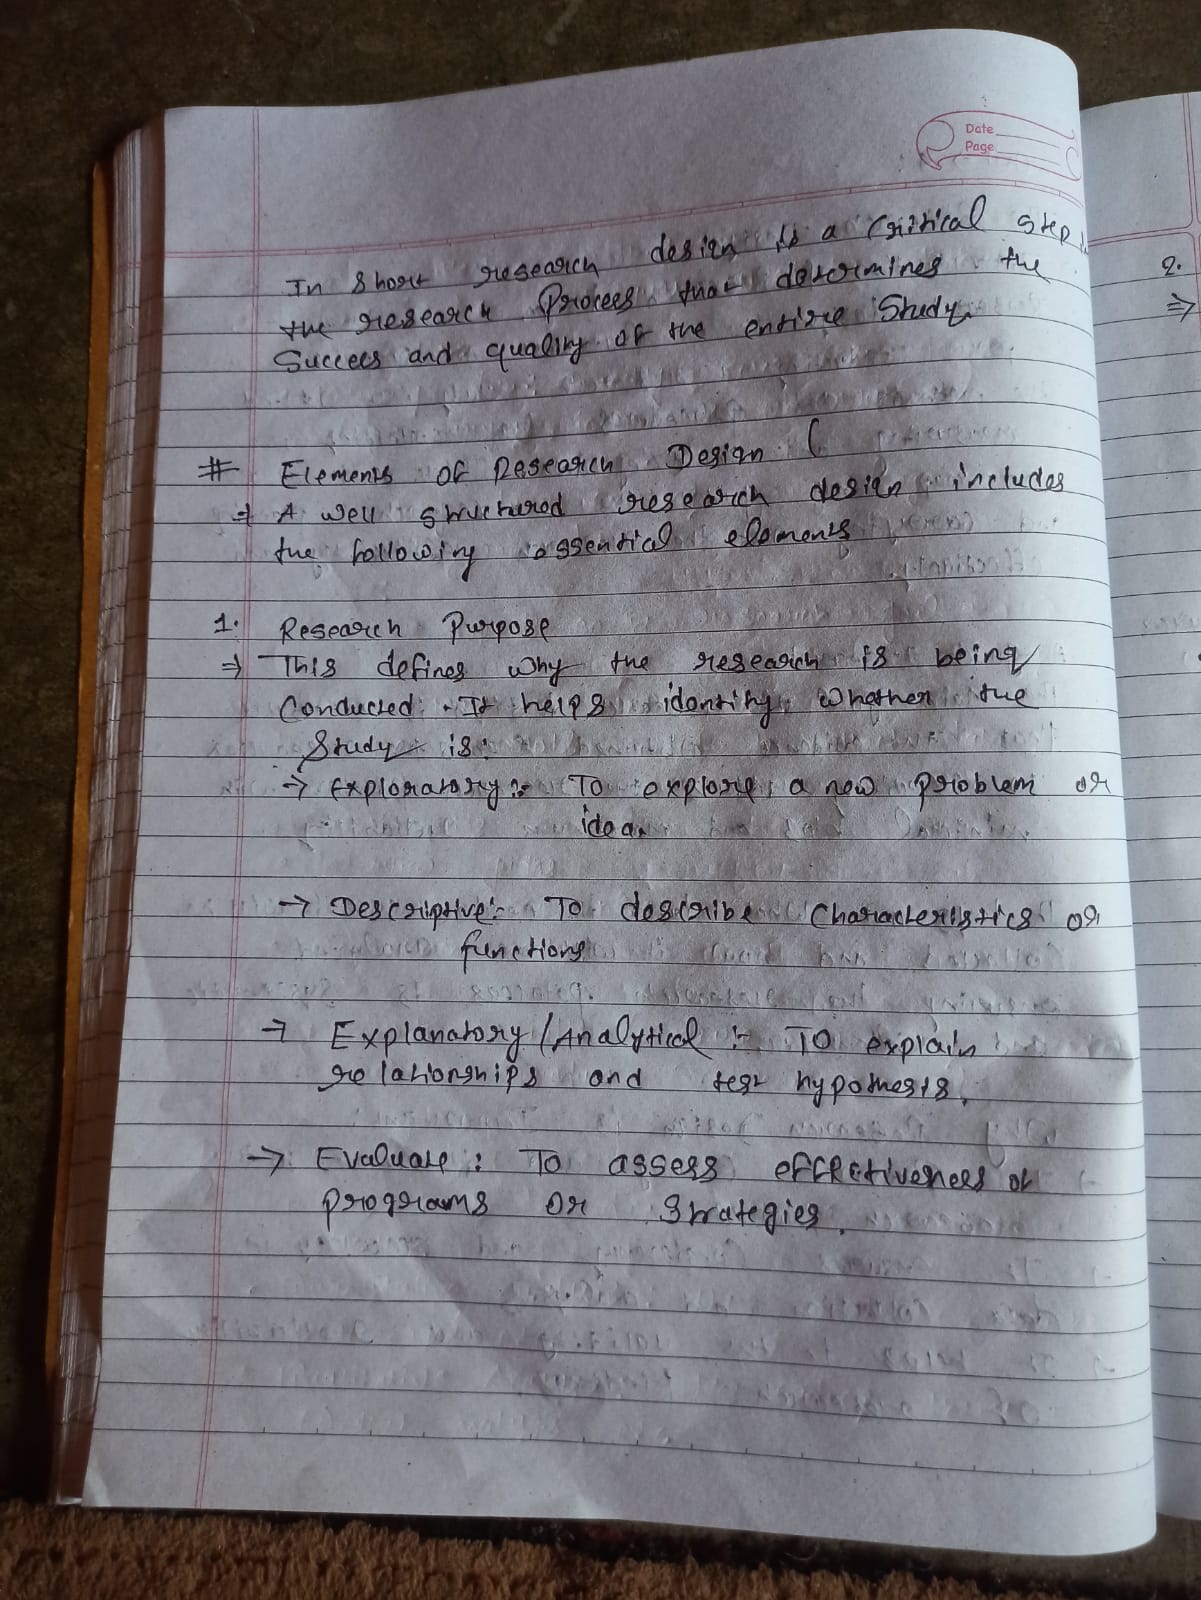 Date
Page
In short research design is a critical step
the research process that determines the
Succees and quality of the entire Study.
# Elements of Research Design (
⇒ A well structured research design includes
the following essential elements
1. Research Purpose
⇒ This defines why the research is being
Conducted. It helps identify whether the
Study is:
→ Exploratory :- To explore a new problem or
idea.
→ Descriptive :- To describe Characteristics or
functions
→ Explanatory / Analytical :- To explain
relationships and test hypothesis.
→ Evaluate : To assess effectiveness of
programs or Strategies.
2.
⇒